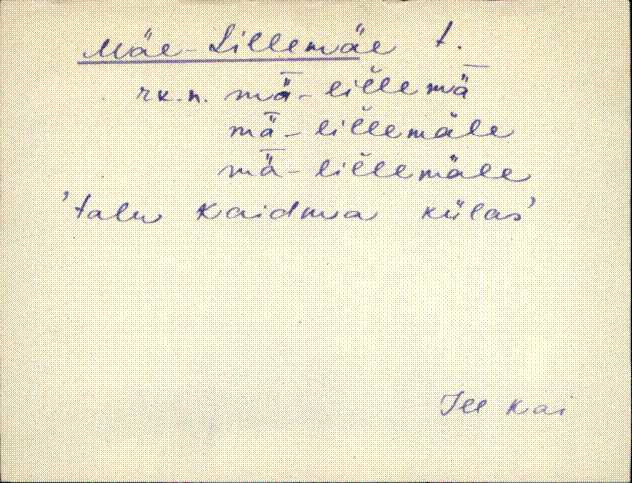 Mäe-Lillemäe t.
rk.n. mǟ-lil̆lemǟ
mǟ-lil̆lemäle
mǟ-lil̆lemäle
'talu Kaidma külas'
Jll Kai